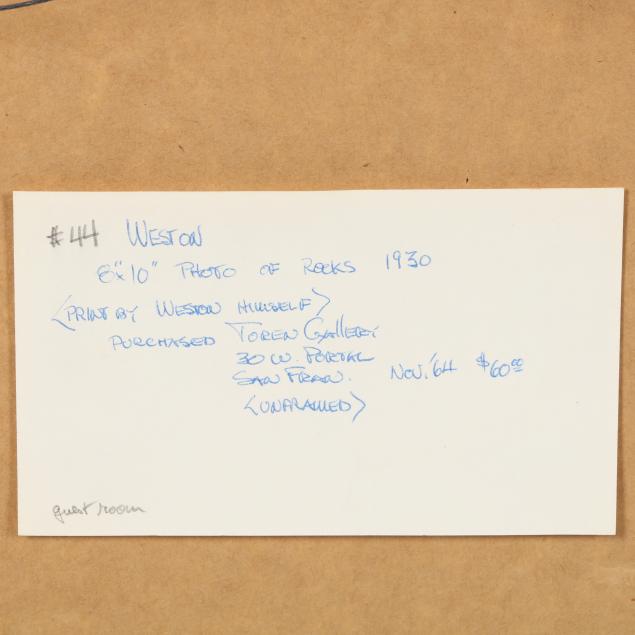 #44 WESTON
8"x10" PHOTO OF ROCKS 1930
<PRINT BY WESTON HIMSELF>
PURCHASED TOREN GALLERY
30 W. PORTAL
SAN FRAN. NOV. '64 $60.00
<UNFRAMED>
guest room